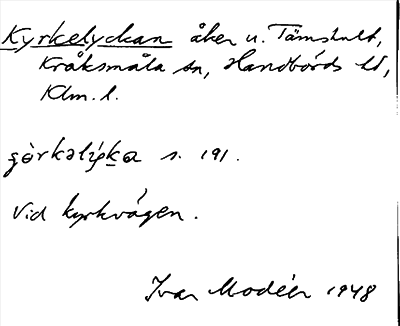 Kyrkelyckan åker u. Tämshult,
Kråksmåla sn, Handbörds hd,
Klm. l.
s. 191.
Vid kyrkvägen.
Ivar Modéer 1948